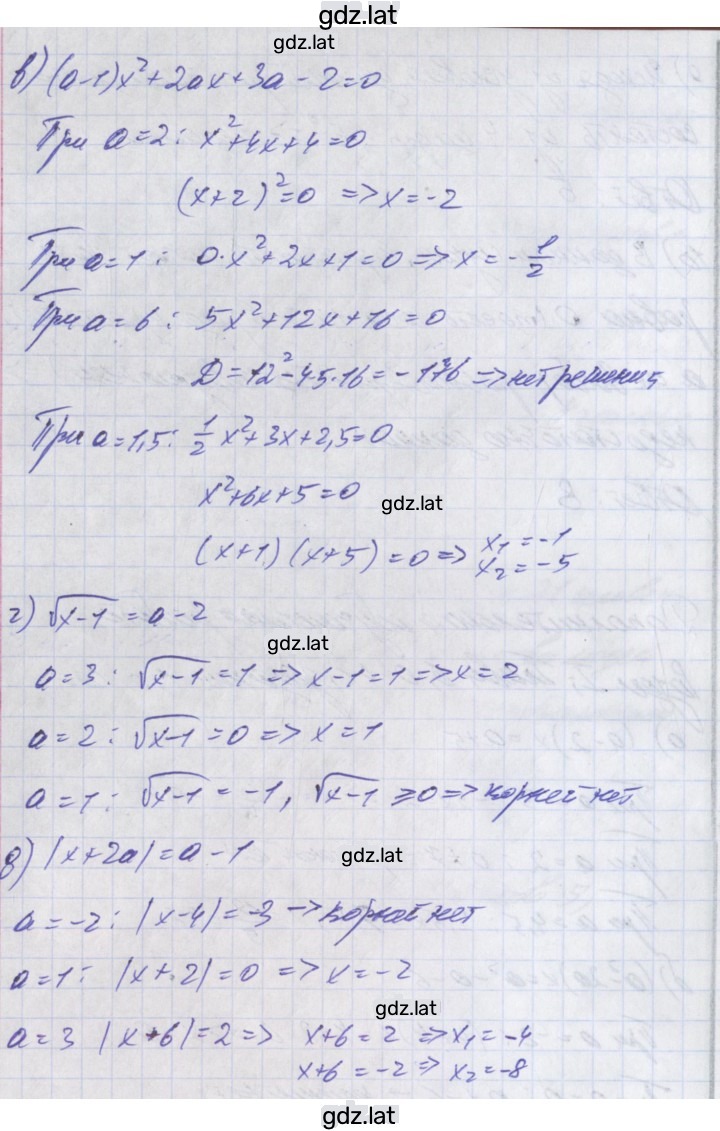 gdz.lat
gdz.lat
в) (a-1)x²+2ax+3a-2=0
При a=2: x²+4x+4=0
(x+2)²=0 => x=-2
При a=1: 0·x²+2x+1=0 => x=-1/2
При a=6: 5x²+12x+16=0
Д=12²-4·5·16=-176 => нет решения
При a=1,5: 1/2 x²+3x+2,5=0
x²+6x+5=0
gdz.lat
(x+1)(x+5)=0 => x₁=-1
x₂=-5
г) √x-1=a-2
gdz.lat
a=3: √x-1=1 => x-1=1 => x=2
a=2: √x-1=0 => x=1
a=1: √x-1=-1, √x-1≥0 => корней нет
д) |x+2a|=a-1
gdz.lat
a=-2: |x-4|=-3 -> корней нет
a=1: |x+2|=0 => x=-2
gdz.lat
a=3 |x+6|=2 => x+6=2 => x₁=-4
x+6=-2 => x₂=-8
gdz.lat